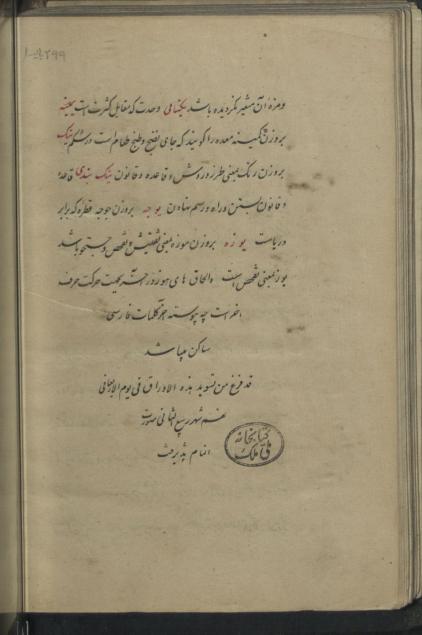 ومزهٔ آن متغیر نگردیده باشد یکتنامی وحدت که مقابل کثرت است یبینه
بروزن نگینه معده را گویند که جای نضج و طبخ طعام است در شکم ینک
بروزن رنگ بمعنی طرز و روش و قاعده و قانون ینک بندی قاعده
و قانون بستن و راه و رسم نهادن یوجه بروزن جوجه قطره که برابر
دریاست یوزه بروزن موزه بمعنی تفتیش و تفحص و جستجو باشد
یوز بمعنی تفحص است و الحاق های هوز در آخر بجهت حرکت حرف
آخر است چه پیوسته آخر کلمات فارسی
ساکن میباشد
قد فرغ من تسوید هذه الاوراق فی یوم
شهر ربیع الثانی صورت
اتمام پذیرفت
کتابخانه
ملی ملک